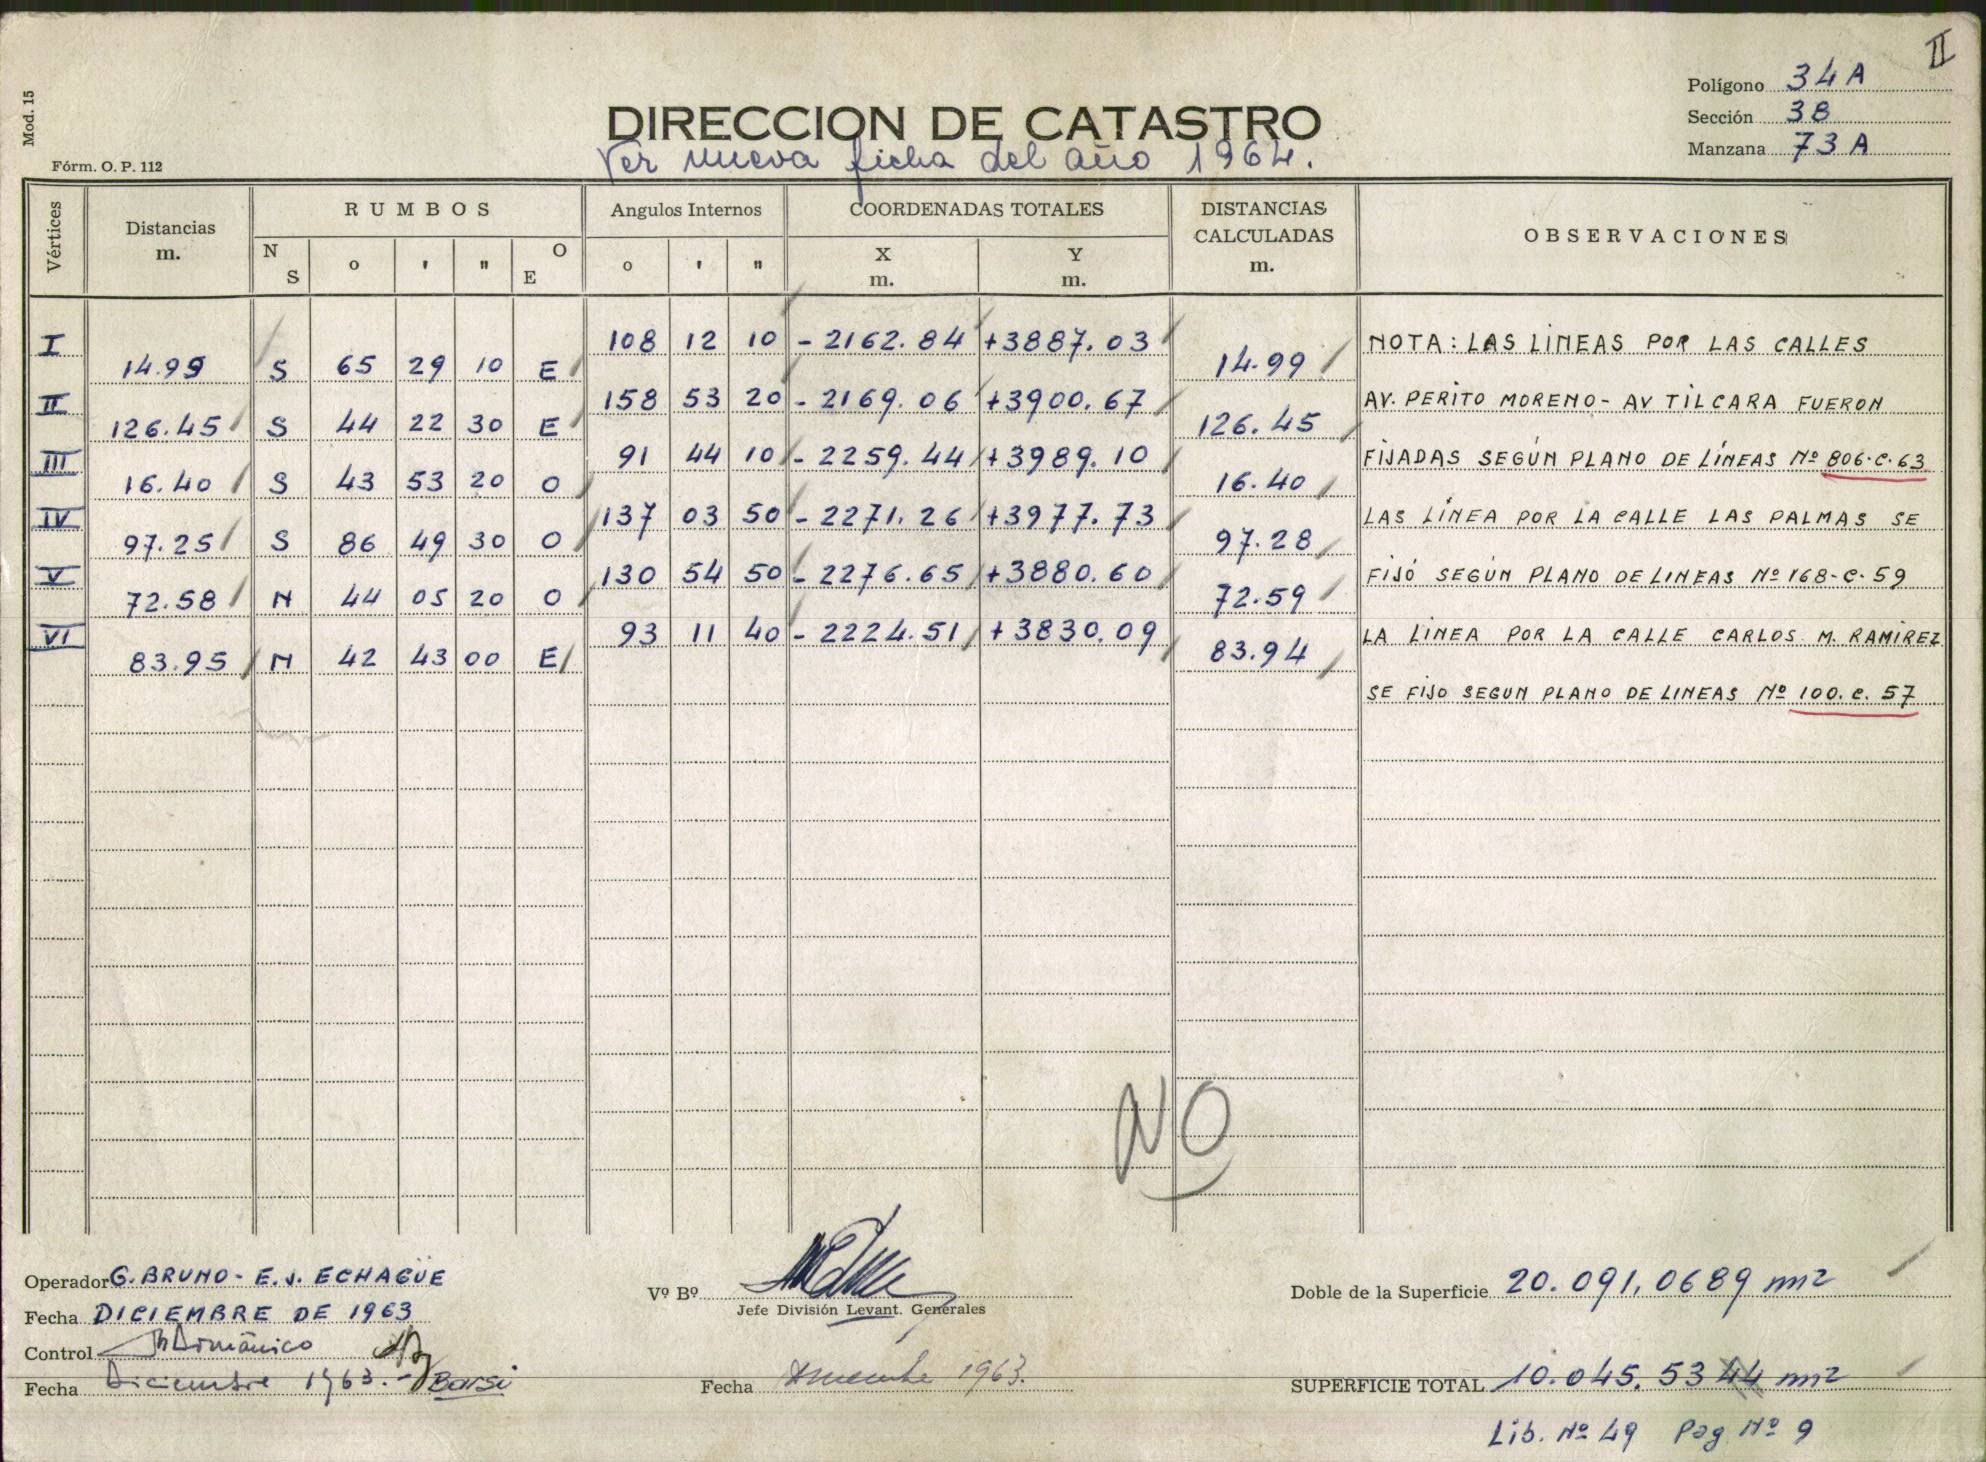 II
Mod. 15
Polígono 34 A
Sección 38
Manzana 73 A
DIRECCION DE CATASTRO
Ver nueva ficha del año 1964.
Fórm. O. P. 112
Vértices Distancias m. RUMBOS Angulos Internos COORDENADAS TOTALES DISTANCIAS CALCULADAS m. OBSERVACIONES
N S o ' " O E o ' " X m. Y m.
I 108 12 10 - 2162.84 +3887.03 NOTA: LAS LINEAS POR LAS CALLES
14.99 S 65 29 10 E 14.99
II 158 53 20 - 2169.06 +3900.67 AV. PERITO MORENO - AV TILCARA FUERON
126.45 S 44 22 30 E 126.45
III 91 44 10 - 2259.44 +3989.10 FIJADAS SEGÚN PLANO DE LÍNEAS Nº 806.C.63
16.40 S 43 53 20 O 16.40
IV 137 03 50 - 2271.26 +3977.73 LAS LÍNEA POR LA CALLE LAS PALMAS SE
97.25 S 86 49 30 O 97.28
V 130 54 50 - 2276.65 +3880.60 FIJÓ SEGÚN PLANO DE LINEAS Nº 168-C-59
72.58 N 44 05 20 O 72.59
VI 93 11 40 - 2224.51 +3830.09 LA LINEA POR LA CALLE CARLOS M. RAMIREZ
83.95 N 42 43 00 E 83.94
SE FIJO SEGUN PLANO DE LINEAS Nº 100.C.57
NO
Operador G. BRUNO - E. J. ECHAGÜE
Fecha DICIEMBRE DE 1963
Control
Fecha Diciembre 1963.- Barsi
Vº Bº
Jefe División Levant. Generales
Fecha Diciembre 1963.
Doble de la Superficie 20.091,0689 m2
SUPERFICIE TOTAL 10.045.5344 m2
Lib. Nº 49 Pag Nº 9